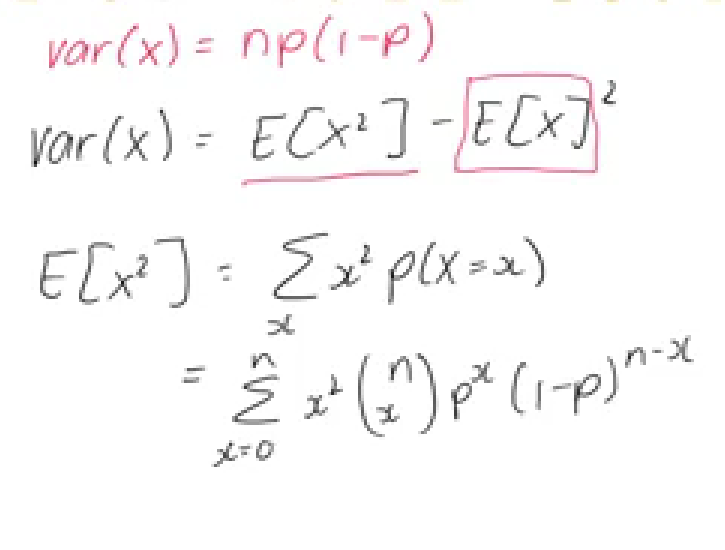 var(x) = np(1-p)
var(x) = E[X²] - E[X]²
E[X²] = ∑ x² p(X=x)
x
= n∑x=0 x² (n x) pˣ (1-p)ⁿ⁻ˣ